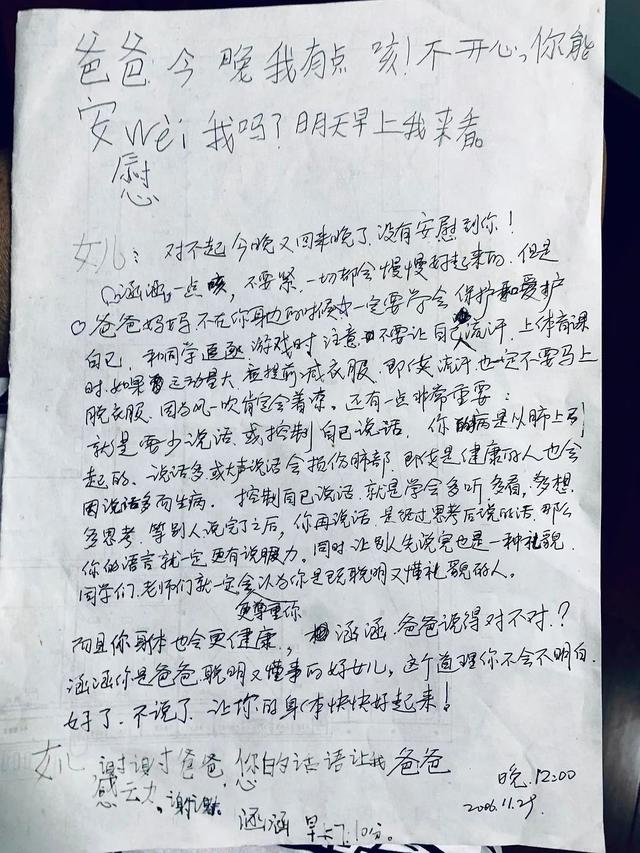 爸爸今晚我有点咳!不开心,你能
安wèi我吗?明天早上我来看。
慰
女儿:对不起今晚又回来晚了,没有安慰到你!
涵涵,一点咳,不要紧,一切都会慢慢好起来的,但是
爸爸妈妈不在你身边的时候一定要学会保护和爱护
自己,和同学追逐、游戏时注意不要让自己流汗,上体育课
时,如果运动量大,要提前减衣服,即使流汗也一定不要马上
脱衣服,因为风一吹肯定会着凉。还有一点非常重要:
就是要少说话,或控制自己说话,你的病是从肺上引
起的、说话多或大声说话会损伤肺部,即使是健康的人也会
因说话多而生病。控制自己说话,就是学会多听,多看,多想
多思考,等别人说完了之后,你再说话,是经过思考后说的话,那么
你的语言就一定更有说服力。同时,让别人先说完也是一种礼貌,
同学们,老师们就一定会认为你是既聪明又懂礼貌的人。
更尊重你
而且你身体也会更健康,涵涵,爸爸说得对不对?
涵涵你是爸爸聪明又懂事的好女儿,这个道理你不会不明白,
好了,不说了,让你的身体快快好起来!
女儿,谢谢爸爸,您的话语让我 爸爸
感动,谢谢。 晚,12:00
2006.11.29
涵涵 早上7:10分。